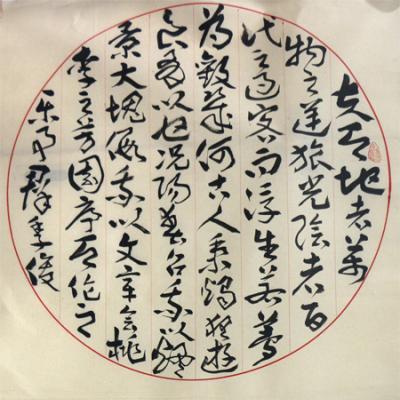 夫天地者萬
物之逆旅光陰者百
代之過客而浮生若夢
為歡幾何古人秉燭夜遊
良有以也況陽春召我以煙
景大塊假我以文章會桃
李之芳園序天倫之
樂事群季俊